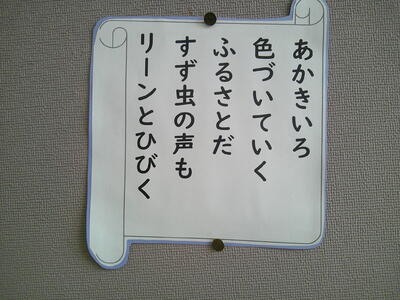 あかきいろ
色づいていく
ふるさとだ
すず虫の声も
リーンとひびく